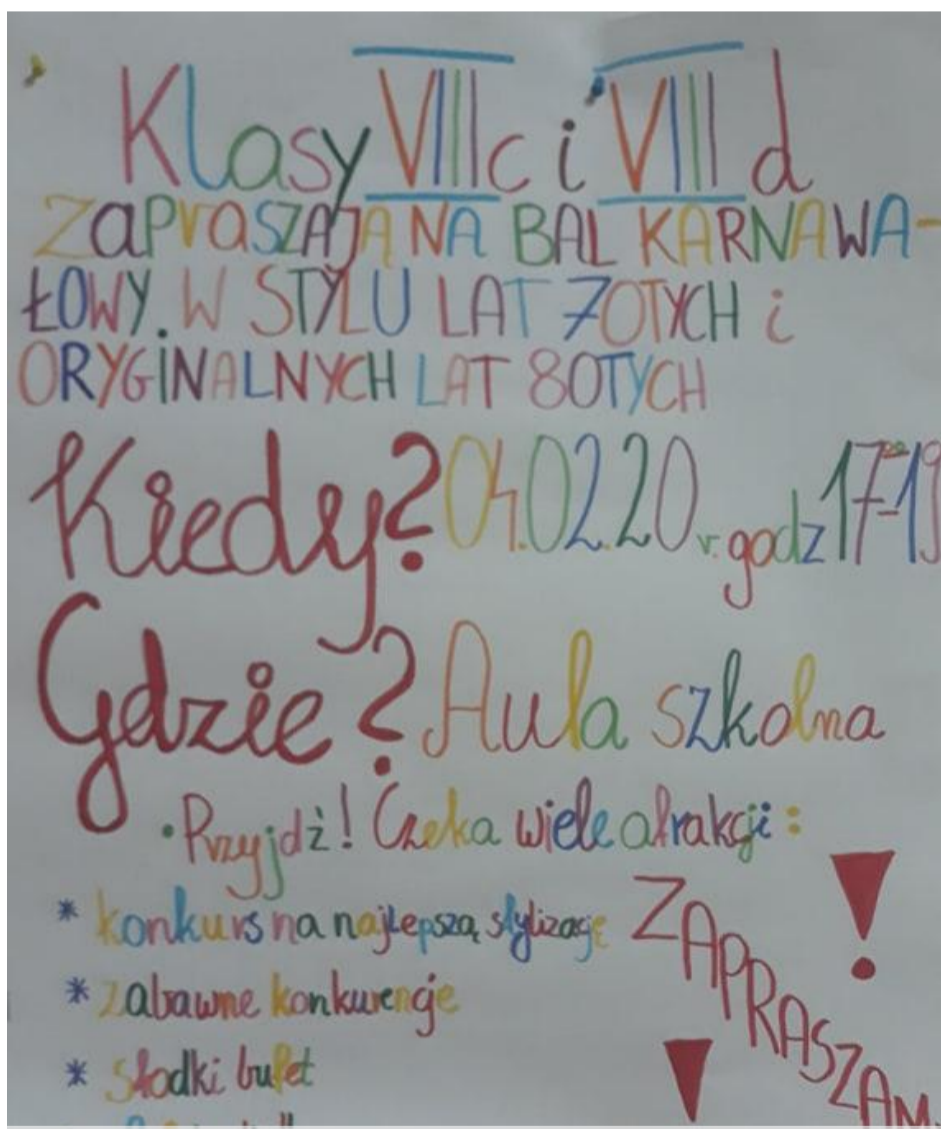 Klasy VIII c i VIII d
ZAPRASZAJĄ NA BAL KARNAWA-
ŁOWY. W STYLU LAT 70TYCH i
ORYGINALNYCH LAT 80TYCH
Kiedy? 04.02.20 r. godz 17⁰⁰-19
Gdzie? Aula szkolna
• Przyjdź! Czeka wiele atrakcji:
* konkurs na najlepszą stylizację
* zabawne konkurencje
* słodki bufet
ZAPRASZAM
!